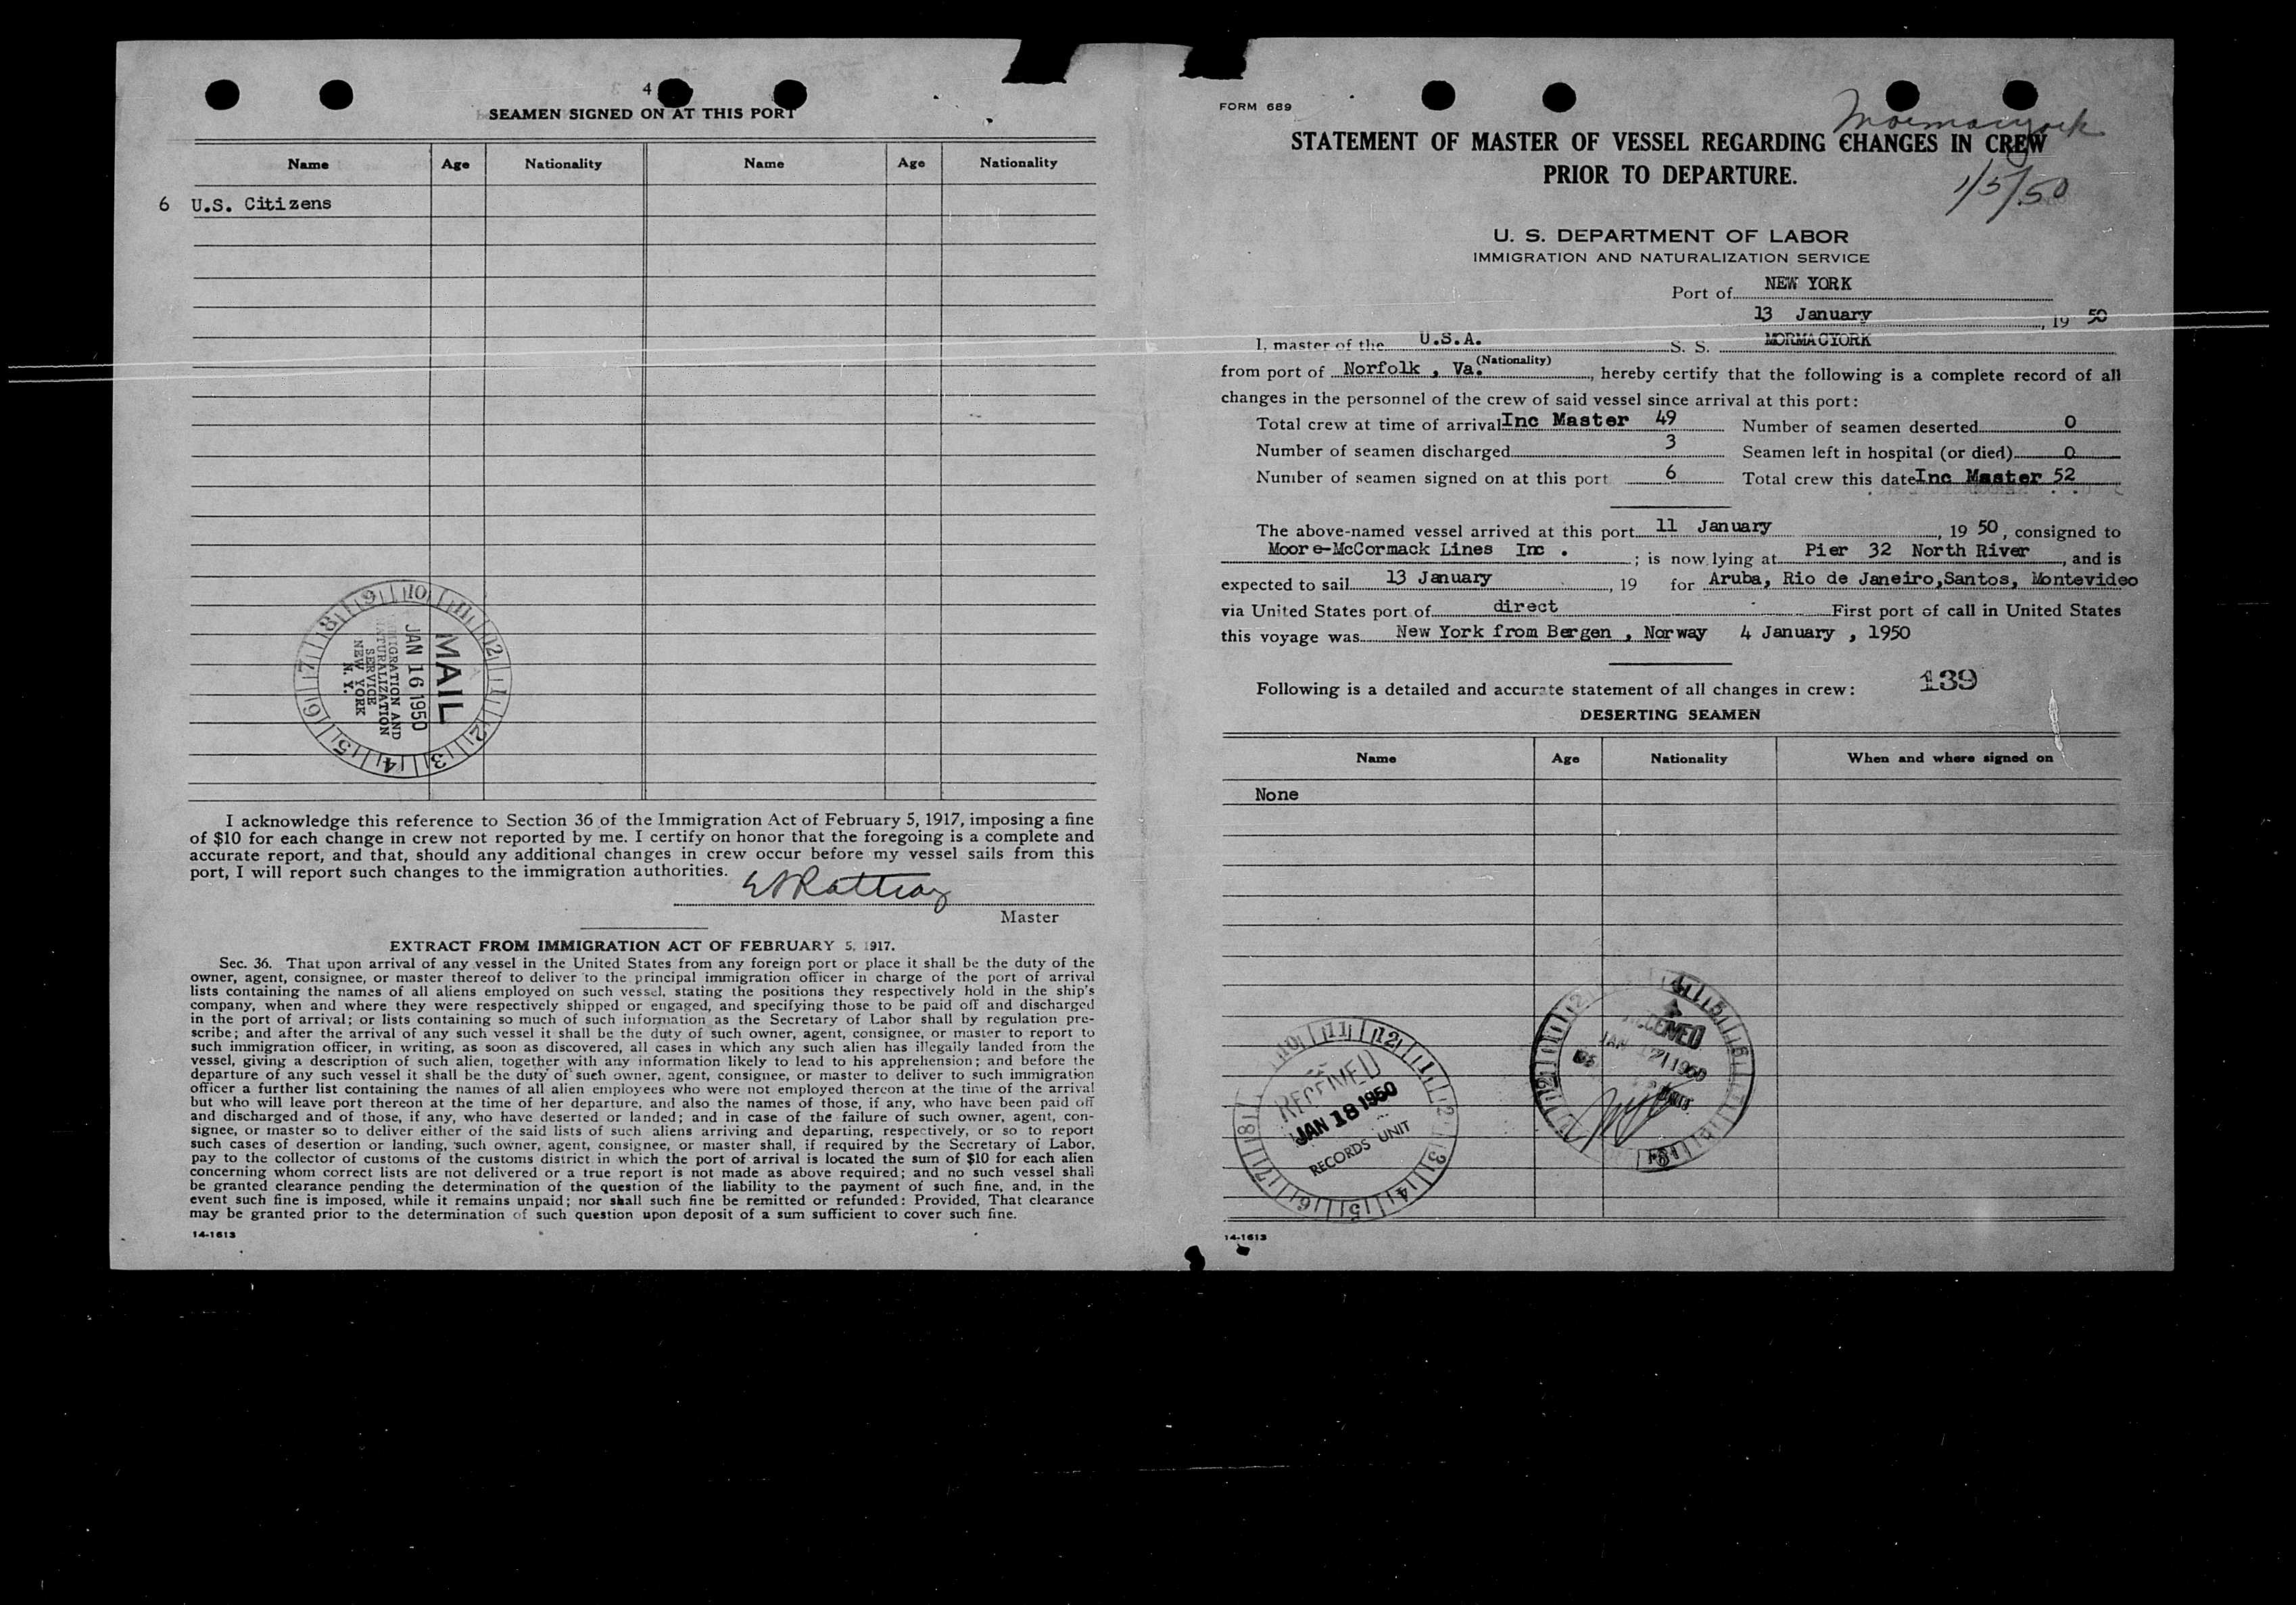 4
SEAMEN SIGNED ON AT THIS PORT
Name Age Nationality Name Age Nationality
6 U.S. Citizens
MAIL
JAN 16 1950
IMMIGRATION AND
NATURALIZATION
SERVICE
NEW YORK
N. Y.
I acknowledge this reference to Section 36 of the Immigration Act of February 5, 1917, imposing a fine
of $10 for each change in crew not reported by me. I certify on honor that the foregoing is a complete and
accurate report, and that, should any additional changes in crew occur before my vessel sails from this
port, I will report such changes to the immigration authorities.
Master
EXTRACT FROM IMMIGRATION ACT OF FEBRUARY 5, 1917.
Sec. 36. That upon arrival of any vessel in the United States from any foreign port or place it shall be the duty of the
owner, agent, consignee, or master thereof to deliver to the principal immigration officer in charge of the port of arrival
lists containing the names of all aliens employed on such vessel, stating the positions they respectively hold in the ship's
company, when and where they were respectively shipped or engaged, and specifying those to be paid off and discharged
in the port of arrival; or lists containing so much of such information as the Secretary of Labor shall by regulation pre-
scribe; and after the arrival of any such vessel it shall be the duty of such owner, agent, consignee, or master to report to
such immigration officer, in writing, as soon as discovered, all cases in which any such alien has illegally landed from the
vessel, giving a description of such alien, together with any information likely to lead to his apprehension; and before the
departure of any such vessel it shall be the duty of such owner, agent, consignee, or master to deliver to such immigration
officer a further list containing the names of all alien employees who were not employed thereon at the time of the arrival
but who will leave port thereon at the time of her departure, and also the names of those, if any, who have been paid off
and discharged and of those, if any, who have deserted or landed; and in case of the failure of such owner, agent, con-
signee, or master so to deliver either of the said lists of such aliens arriving and departing, respectively, or so to report
such cases of desertion or landing, such owner, agent, consignee, or master shall, if required by the Secretary of Labor,
pay to the collector of customs of the customs district in which the port of arrival is located the sum of $10 for each alien
concerning whom correct lists are not delivered or a true report is not made as above required; and no such vessel shall
be granted clearance pending the determination of the question of the liability to the payment of such fine, and, in the
event such fine is imposed, while it remains unpaid; nor shall such fine be remitted or refunded: Provided, That clearance
may be granted prior to the determination of such question upon deposit of a sum sufficient to cover such fine.
14-1613
FORM 689
Mormacyork
STATEMENT OF MASTER OF VESSEL REGARDING CHANGES IN CREW
PRIOR TO DEPARTURE.
1/5/50
U. S. DEPARTMENT OF LABOR
IMMIGRATION AND NATURALIZATION SERVICE
Port of NEW YORK
13 January, 19 50
I, master of the U.S.A. S. S. MORMACYORK
(Nationality)
from port of Norfolk , Va., hereby certify that the following is a complete record of all
changes in the personnel of the crew of said vessel since arrival at this port:
Total crew at time of arrival Inc Master 49 Number of seamen deserted 0
Number of seamen discharged 3 Seamen left in hospital (or died) 0
Number of seamen signed on at this port 6 Total crew this date Inc Master 52
The above-named vessel arrived at this port 11 January, 19 50, consigned to
Moore-McCormack Lines Inc .; is now lying at Pier 32 North River, and is
expected to sail 13 January, 19 for Aruba, Rio de Janeiro,Santos, Montevideo
via United States port of direct First port of call in United States
this voyage was New York from Bergen , Norway 4 January , 1950
Following is a detailed and accurate statement of all changes in crew: 139
DESERTING SEAMEN
Name Age Nationality When and where signed on
None
RECEIVED
JAN 18 1950
RECORDS UNIT
RECEIVED
14-1613